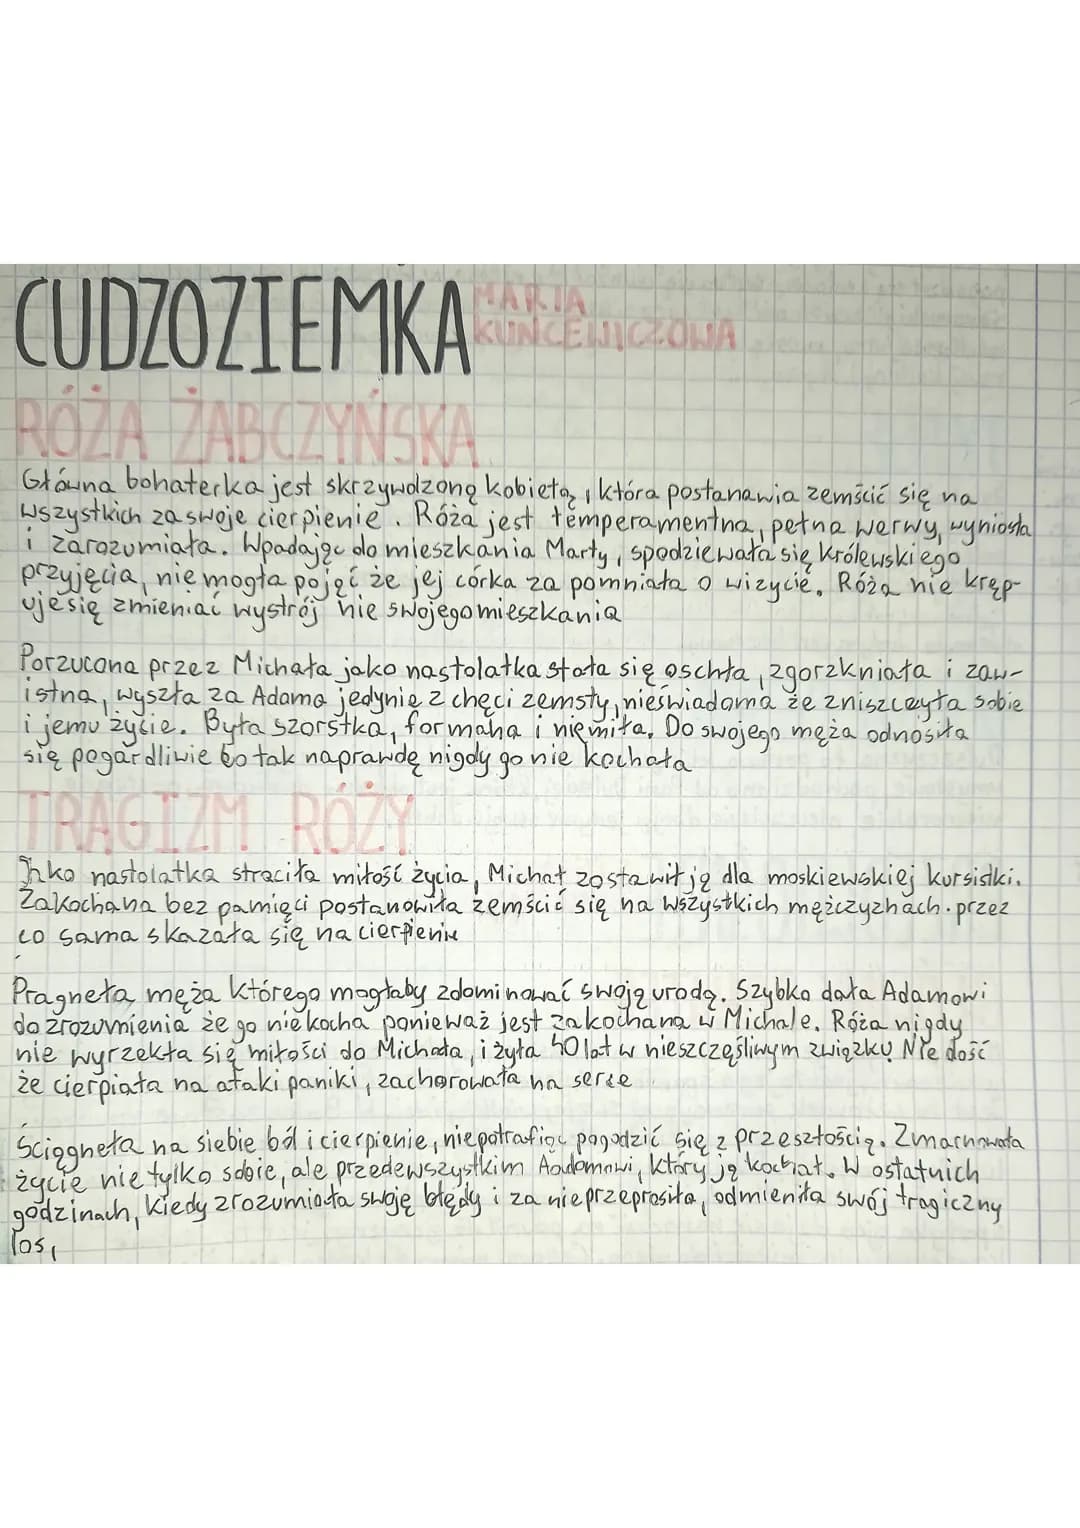 CUDZOZIEMKA MARIA KUNCEWICZOWA
RÓŻA ŻABCZYŃSKA
Główna bohaterka jest skrzywdzoną kobietą, która postanawia zemścić się na
wszystkich za swoje cierpienie. Róża jest temperamentna, pełna werwy, wyniosła
i zarozumiała. Wpadając do mieszkania Marty, spodziewała się królewskiego
przyjęcia, nie mogła pojąć że jej córka za pomniała o wizycie. Róża nie kręp-
uje się zmieniać wystrój nie swojego mieszkania
Porzucona przez Michała jako nastolatka stała się oschła, zgorzkniała i zaw-
istna, wyszła za Adama jedynie z chęci zemsty, nieświadoma że zniszczyła sobie
i jemu życie. Była szorstka, formalna i niemiła. Do swojego męża odnosiła
się pogardliwie bo tak naprawdę nigdy go nie kochała
TRAGIZM RÓŻY
Jako nastolatka straciła miłość życia, Michał zostawił ją dla moskiewskiej kursistki.
Zakochana bez pamięci postanowiła zemścić się na wszystkich mężczyznach. przez
co sama skazała się na cierpienie
Pragnęła męża którego mogłaby zdominować swoją urodą. Szybko dała Adamowi
do zrozumienia że go nie kocha ponieważ jest zakochana w Michale. Róża nigdy
nie wyrzekła się miłości do Michała, i żyła 40 lat w nieszczęśliwym związku Nie dość
że cierpiała na ataki paniki, zachorowała na serce
Ściągnęła na siebie ból i cierpienie, niepotrafiąc pogodzić się z przeszłością. Zmarnowała
życie nie tylko sobie, ale przedewszystkim Adamowi, który ją kochał. W ostatnich
godzinach, kiedy zrozumiała swoję błędy i za nie przeprosiła, odmieniła swój tragiczny
los,